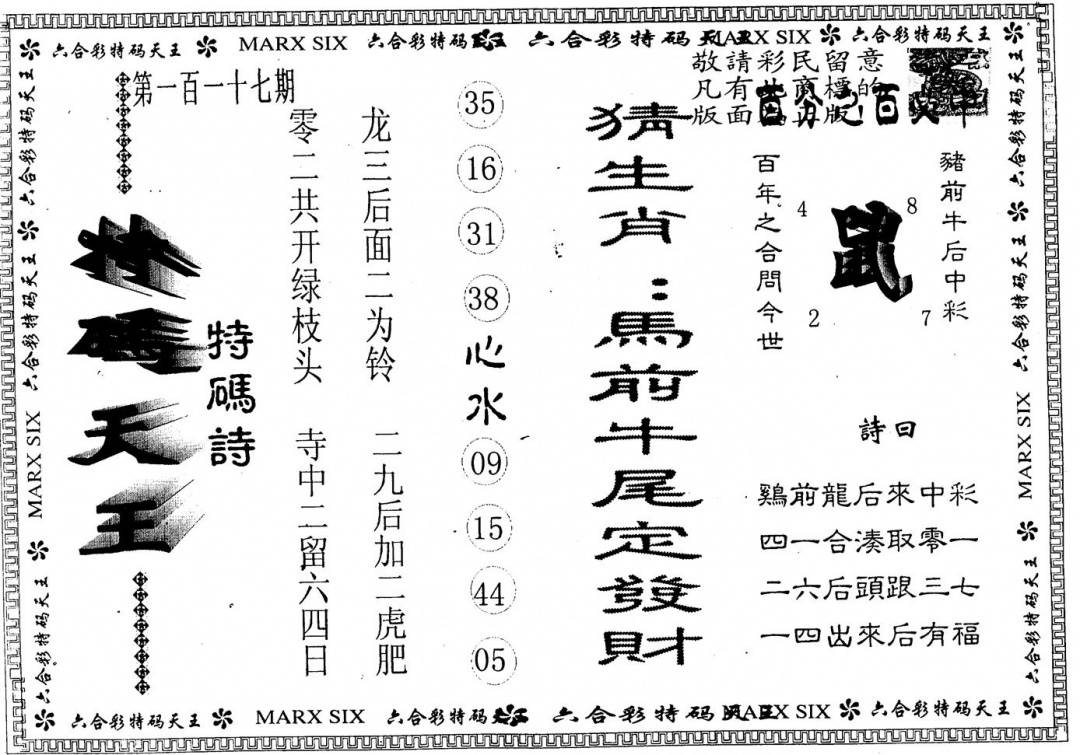 六合彩特码天王
MARX SIX
六合彩特码
六合彩特码天王
MARX SIX
六合彩特码天王
六合彩特码天王
六合彩特码天王
六合彩特码天王
MARX SIX
六合彩特码天王
第一百一十七期
特碼天王
特碼詩
零二共开绿枝头 寺中二留六四日
龙三后面二为铃 二九后加二虎肥
35
16
31
38
心水
09
15
44
05
猜生肖：馬前牛尾定發財
敬請彩民留意
凡有 商標的
版面 版
百年之合問今世
4
8
鼠
2
7
豬前牛后中彩
詩曰
鷄前龍后來中彩
四一合湊取零一
二六后頭跟三七
一四出來后有福
六合彩特码天王
六合彩特码天王
MARX SIX
六合彩特码天王
六合彩特码天王
MARX SIX
六合彩特码
六合彩特码天王
MARX SIX
六合彩特码天王